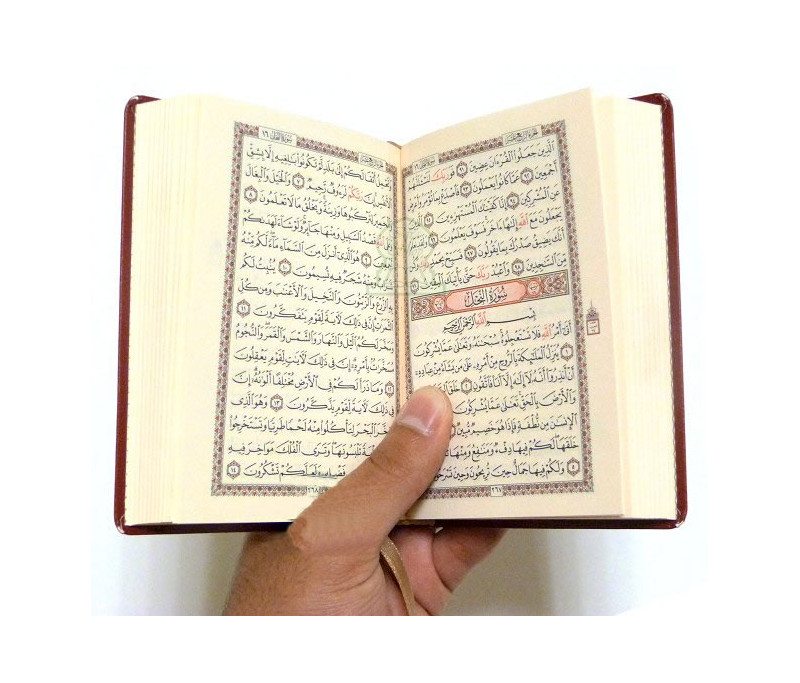 ٱلَّذِينَ جَعَلُوا۟ ٱلْقُرْءَانَ عِضِينَ ٩١ فَوَرَبِّكَ لَنَسْـَٔلَنَّهُمْ
أَجْمَعِينَ ٩٢ عَمَّا كَانُوا۟ يَعْمَلُونَ ٩٣ فَٱصْدَعْ بِمَا تُؤْمَرُ وَأَعْرِضْ
عَنِ ٱلْمُشْرِكِينَ ٩٤ إِنَّا كَفَيْنَـٰكَ ٱلْمُسْتَهْزِءِينَ ٩٥
يَجْعَلُونَ مَعَ ٱللَّهِ إِلَـٰهًا ءَاخَرَ فَسَوْفَ يَعْلَمُونَ ٩٦ وَلَقَدْ نَعْلَمُ
أَنَّكَ يَضِيقُ صَدْرُكَ بِمَا يَقُولُونَ ٩٧ فَسَبِّحْ بِحَمْدِ رَبِّكَ وَكُن
مِّنَ ٱلسَّـٰجِدِينَ ٩٨ وَٱعْبُدْ رَبَّكَ حَتَّىٰ يَأْتِيَكَ ٱلْيَقِينُ ٩٩
سُورَةُ النَّحْلِ
بِسْمِ ٱللَّهِ ٱلرَّحْمَـٰنِ ٱلرَّحِيمِ
أَتَىٰٓ أَمْرُ ٱللَّهِ فَلَا تَسْتَعْجِلُوهُ سُبْحَـٰنَهُۥ وَتَعَـٰلَىٰ عَمَّا يُشْرِكُونَ
١ يُنَزِّلُ ٱلْمَلَـٰٓئِكَةَ بِٱلرُّوحِ مِنْ أَمْرِهِۦ عَلَىٰ مَن يَشَآءُ مِنْ عِبَادِهِۦٓ
أَنْ أَنذِرُوٓا۟ أَنَّهُۥ لَآ إِلَـٰهَ إِلَّآ أَنَا۠ فَٱتَّقُونِ ٢ خَلَقَ
وَٱلْأَرْضَ بِٱلْحَقِّ تَعَـٰلَىٰ عَمَّا يُشْرِكُونَ
ٱلْإِنسَـٰنَ مِن نُّطْفَةٍ فَإِذَا هُوَ خَصِيمٌ مُّبِينٌ
خَلَقَهَا لَكُمْ فِيهَا دِفْءٌ وَمَنَـٰفِعُ وَمِنْهَا
٥ وَلَكُمْ فِيهَا جَمَالٌ حِينَ تُرِيحُونَ وَحِينَ تَسْرَحُونَ
٢٦٧
سُورَةُ النَّحْلِ ١٦
وَتَحْمِلُ أَثْقَالَكُمْ إِلَىٰ بَلَدٍ لَّمْ تَكُونُوا۟ بَـٰلِغِيهِ إِلَّا بِشِقِّ
ٱلْأَنفُسِ إِنَّ رَبَّكُمْ لَرَءُوفٌ رَّحِيمٌ ٧ وَٱلْخَيْلَ وَٱلْبِغَالَ
لِتَرْكَبُوهَا وَزِينَةً وَيَخْلُقُ مَا لَا تَعْلَمُونَ ٨
ٱللَّهِ قَصْدُ ٱلسَّبِيلِ وَمِنْهَا جَآئِرٌ وَلَوْ شَآءَ لَهَدَىٰكُمْ
٩ هُوَ ٱلَّذِىٓ أَنزَلَ مِنَ ٱلسَّمَآءِ مَآءً لَّكُم مِّنْهُ
وَمِنْهُ شَجَرٌ فِيهِ تُسِيمُونَ ١٠ يُنۢبِتُ لَكُم
بِهِ ٱلزَّرْعَ وَٱلزَّيْتُونَ وَٱلنَّخِيلَ وَٱلْأَعْنَـٰبَ وَمِن كُلِّ
ٱلثَّمَرَٰتِ إِنَّ فِى ذَٰلِكَ لَـَٔايَةً لِّقَوْمٍ يَتَفَكَّرُونَ ١١
وَسَخَّرَ لَكُمُ ٱلَّيْلَ وَٱلنَّهَارَ وَٱلشَّمْسَ وَٱلْقَمَرَ وَٱلنُّجُومُ
مُسَخَّرَٰتٌۢ بِأَمْرِهِۦٓ إِنَّ فِى ذَٰلِكَ لَـَٔايَـٰتٍ لِّقَوْمٍ يَعْقِلُونَ
١٢ وَمَا ذَرَأَ لَكُمْ فِى ٱلْأَرْضِ مُخْتَلِفًا أَلْوَٰنُهُۥٓ إِنَّ
فِى ذَٰلِكَ لَـَٔايَةً لِّقَوْمٍ يَذَّكَّرُونَ ١٣ وَهُوَ ٱلَّذِى
سَخَّرَ ٱلْبَحْرَ لِتَأْكُلُوا۟ مِنْهُ لَحْمًا طَرِيًّا وَتَسْتَخْرِجُوا۟
تَلْبَسُونَهَا وَتَرَى ٱلْفُلْكَ مَوَاخِرَ فِيهِ
فَضْلِهِۦ وَلَعَلَّكُمْ تَشْكُرُونَ ١٤
٢٦٨